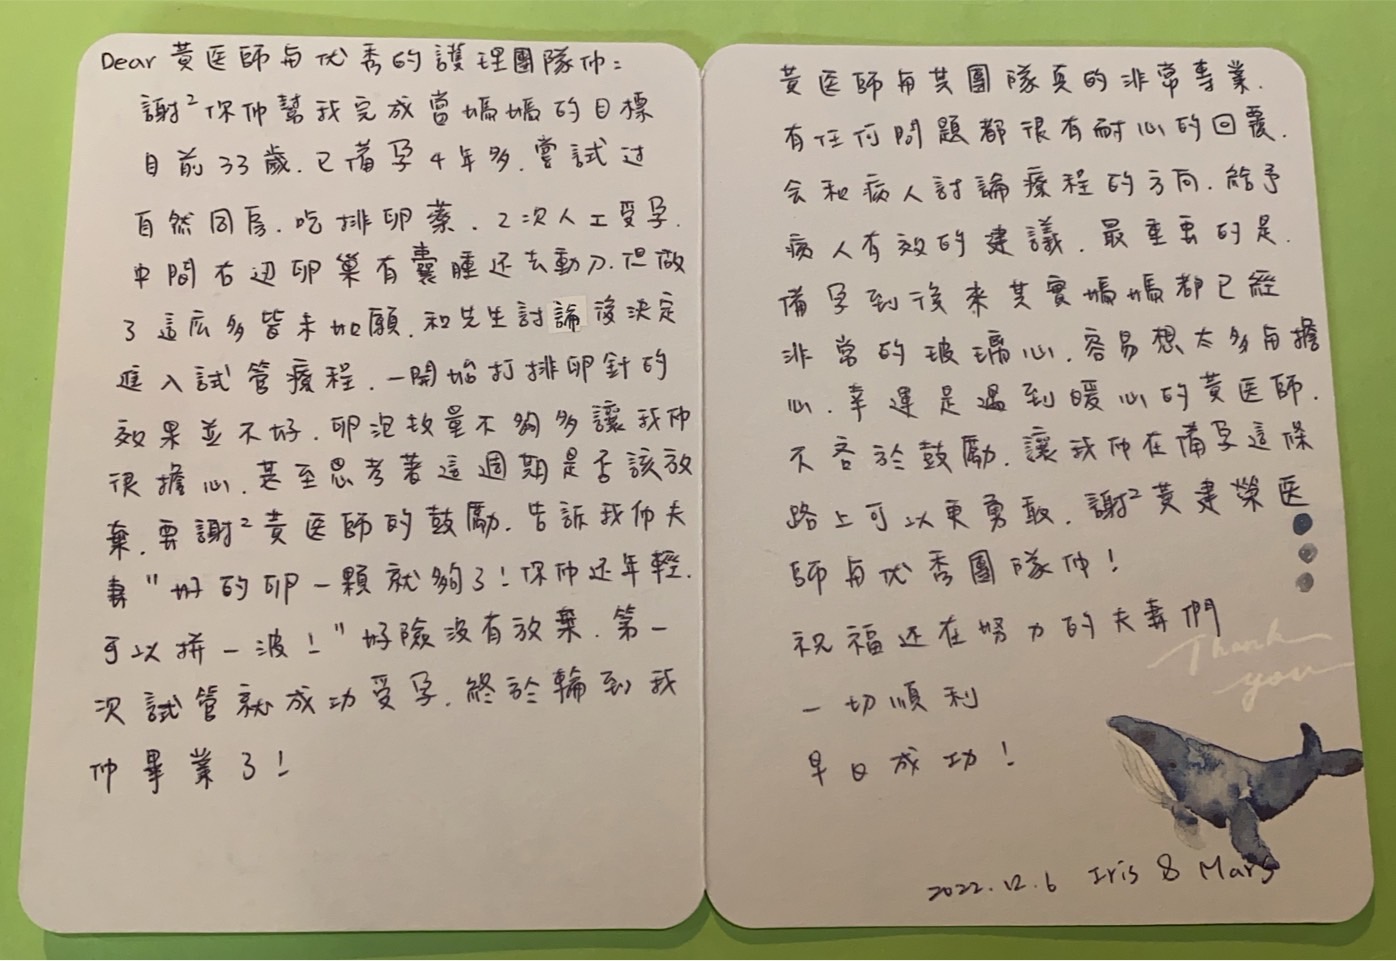 Dear 黃医師与优秀的護理團隊们：
謝²你们幫我完成當媽媽的目標
目前33歲．已備孕4年多．嘗試过
自然同房．吃排卵藥．2次人工受孕．
中間右边卵巢有囊腫还去動刀．但做
了這么多皆未如願．和先生討論後決定
進入試管療程．一開始打排卵針的
效果並不好．卵泡数量不夠多讓我们
很擔心．甚至思考著這週期是否該放
棄．要謝²黃医師的鼓勵．告訴我们夫
妻"好的卵一顆就夠了！你们还年輕．
可以拼一波！"好險沒有放棄．第一
次試管就成功受孕．終於輪到我
们畢業了！
黃医師与其團隊真的非常專業．
有任何問題都很有耐心的回覆．
会和病人討論療程的方向．給予
病人有效的建議．最重要的是．
備孕到後來其實媽媽都已經
非常的玻璃心．容易想太多与擔
心．幸運是遇到暖心的黃医師．
不吝於鼓勵．讓我们在備孕這條
路上可以更勇敢．謝²黃建榮医
師与优秀團隊们！
祝福还在努力的夫妻們
一切順利
早日成功！
Thank
you
2022.12.6 Iris & Mars